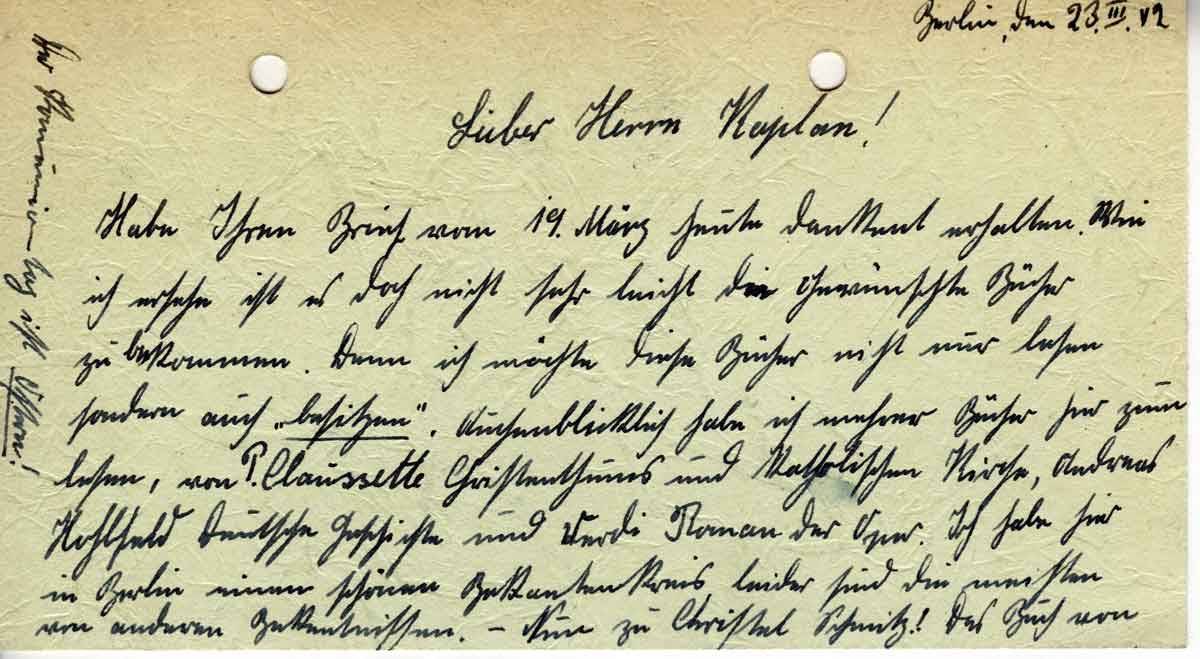 Berlin, den 23.III.42
Lieber Herrn Kaplan!
Habe Ihren Brief vom 19. März heute dankent erhalten. Wie
ich ersehe ist es doch nicht sehr leicht die gewünschte Bücher
zu bekommen. Denn ich möchte diese Bücher nicht nur lesen
sondern auch „besitzen“. Auchenblicklich habe ich mehrer Bücher hier zum
lesen, von P. Claussette Christenthums und Katholischen Kirche, Andreas
Hohlfeld Deutsche Geschichte und Verdi Roman der Oper. Ich habe hier
in Berlin einen schönen Bekantenkreis leider sind die meisten
von anderen Bekentnissen. – Nun zu Christel Schmitz! Das Buch von
Der Kommuniontag ist Ostern!